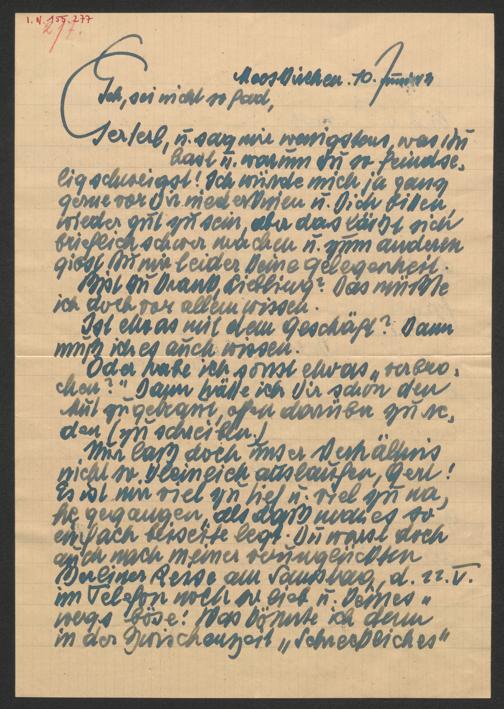 I.N. 155.277
Mooskirchen. 10. Juni 43
Ich, sei nicht so fad,
Gerterl, u. sag mir wenigstens, was Du
hast u. warum Du so feindse-
lig schweigst! Ich würde mich ja ganz
gerne vor Dir niederknien u. Dich bitten
wieder gut zu sein, aber das läßt sich
brieflich schwer machen u. zum anderen
gibst Du mir leider keine Gelegenheit.
Bist Du krank, Liebling? Das müßte
ich doch vor allem wissen.
Ist etwas mit dem Geschäft? Dann
muß ich es auch wissen.
Oder habe ich sonst etwas „verbro-
chen?" Dann hätte ich Dir schon den
Mut zugetraut, offen darüber zu re-
den (zu schreiben.)
Nur laß doch unser Verhältnis
nicht so kleinlich auslaufen, Gert!
Es ist mir viel zu tief u. viel zu na-
he gegangen als daß man es so
einfach beiseite legt. Du warst doch
auch nach meiner verunglückten
Berliner Reise am Samstag, d. 22. V.
im Telefon noch so lieb u. keines-
wegs böse! Was könnte ich denn
in der Zwischenzeit „Schreckliches"